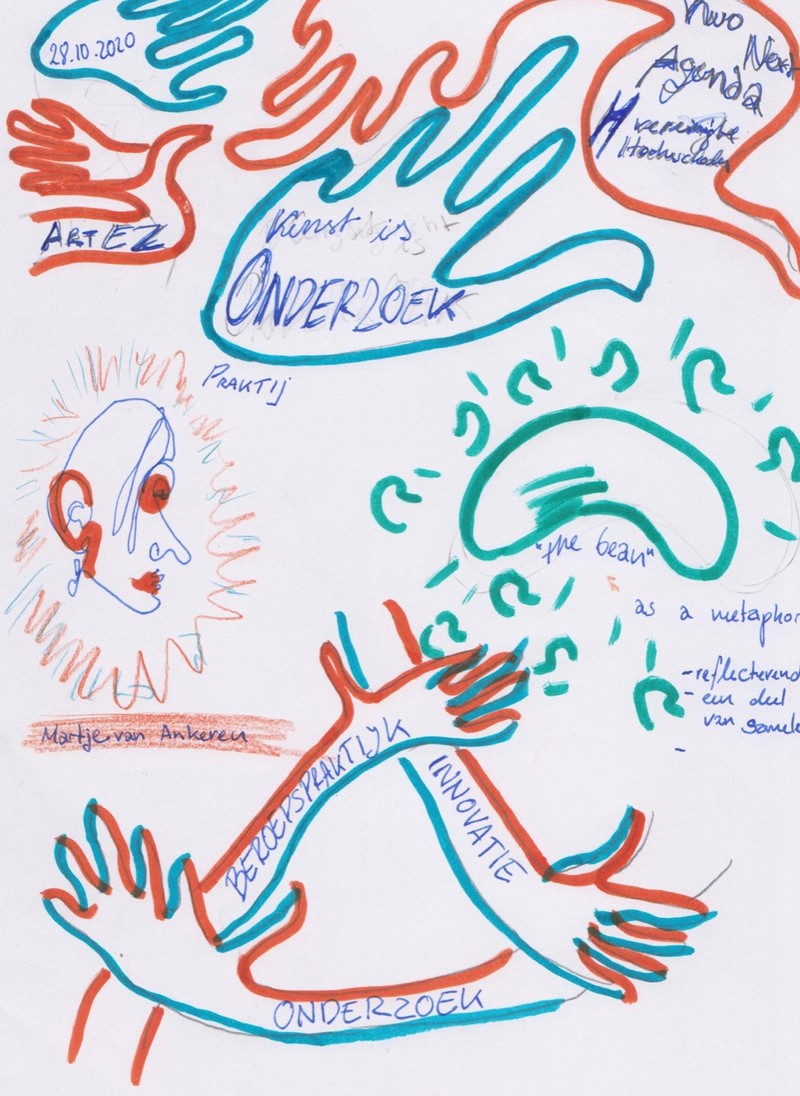 28.10.2020
NWO
Next
Agenda
H vereniging
Hochschulen
ARTEZ
Kunst is
ONDERZOEK
PRAKTIJ
"the bean"
as a metaphor
-reflecterend
- een deel
van
-
Martje van Ankeren
BEROEPSPRAKTIJK
INNOVATIE
ONDERZOEK